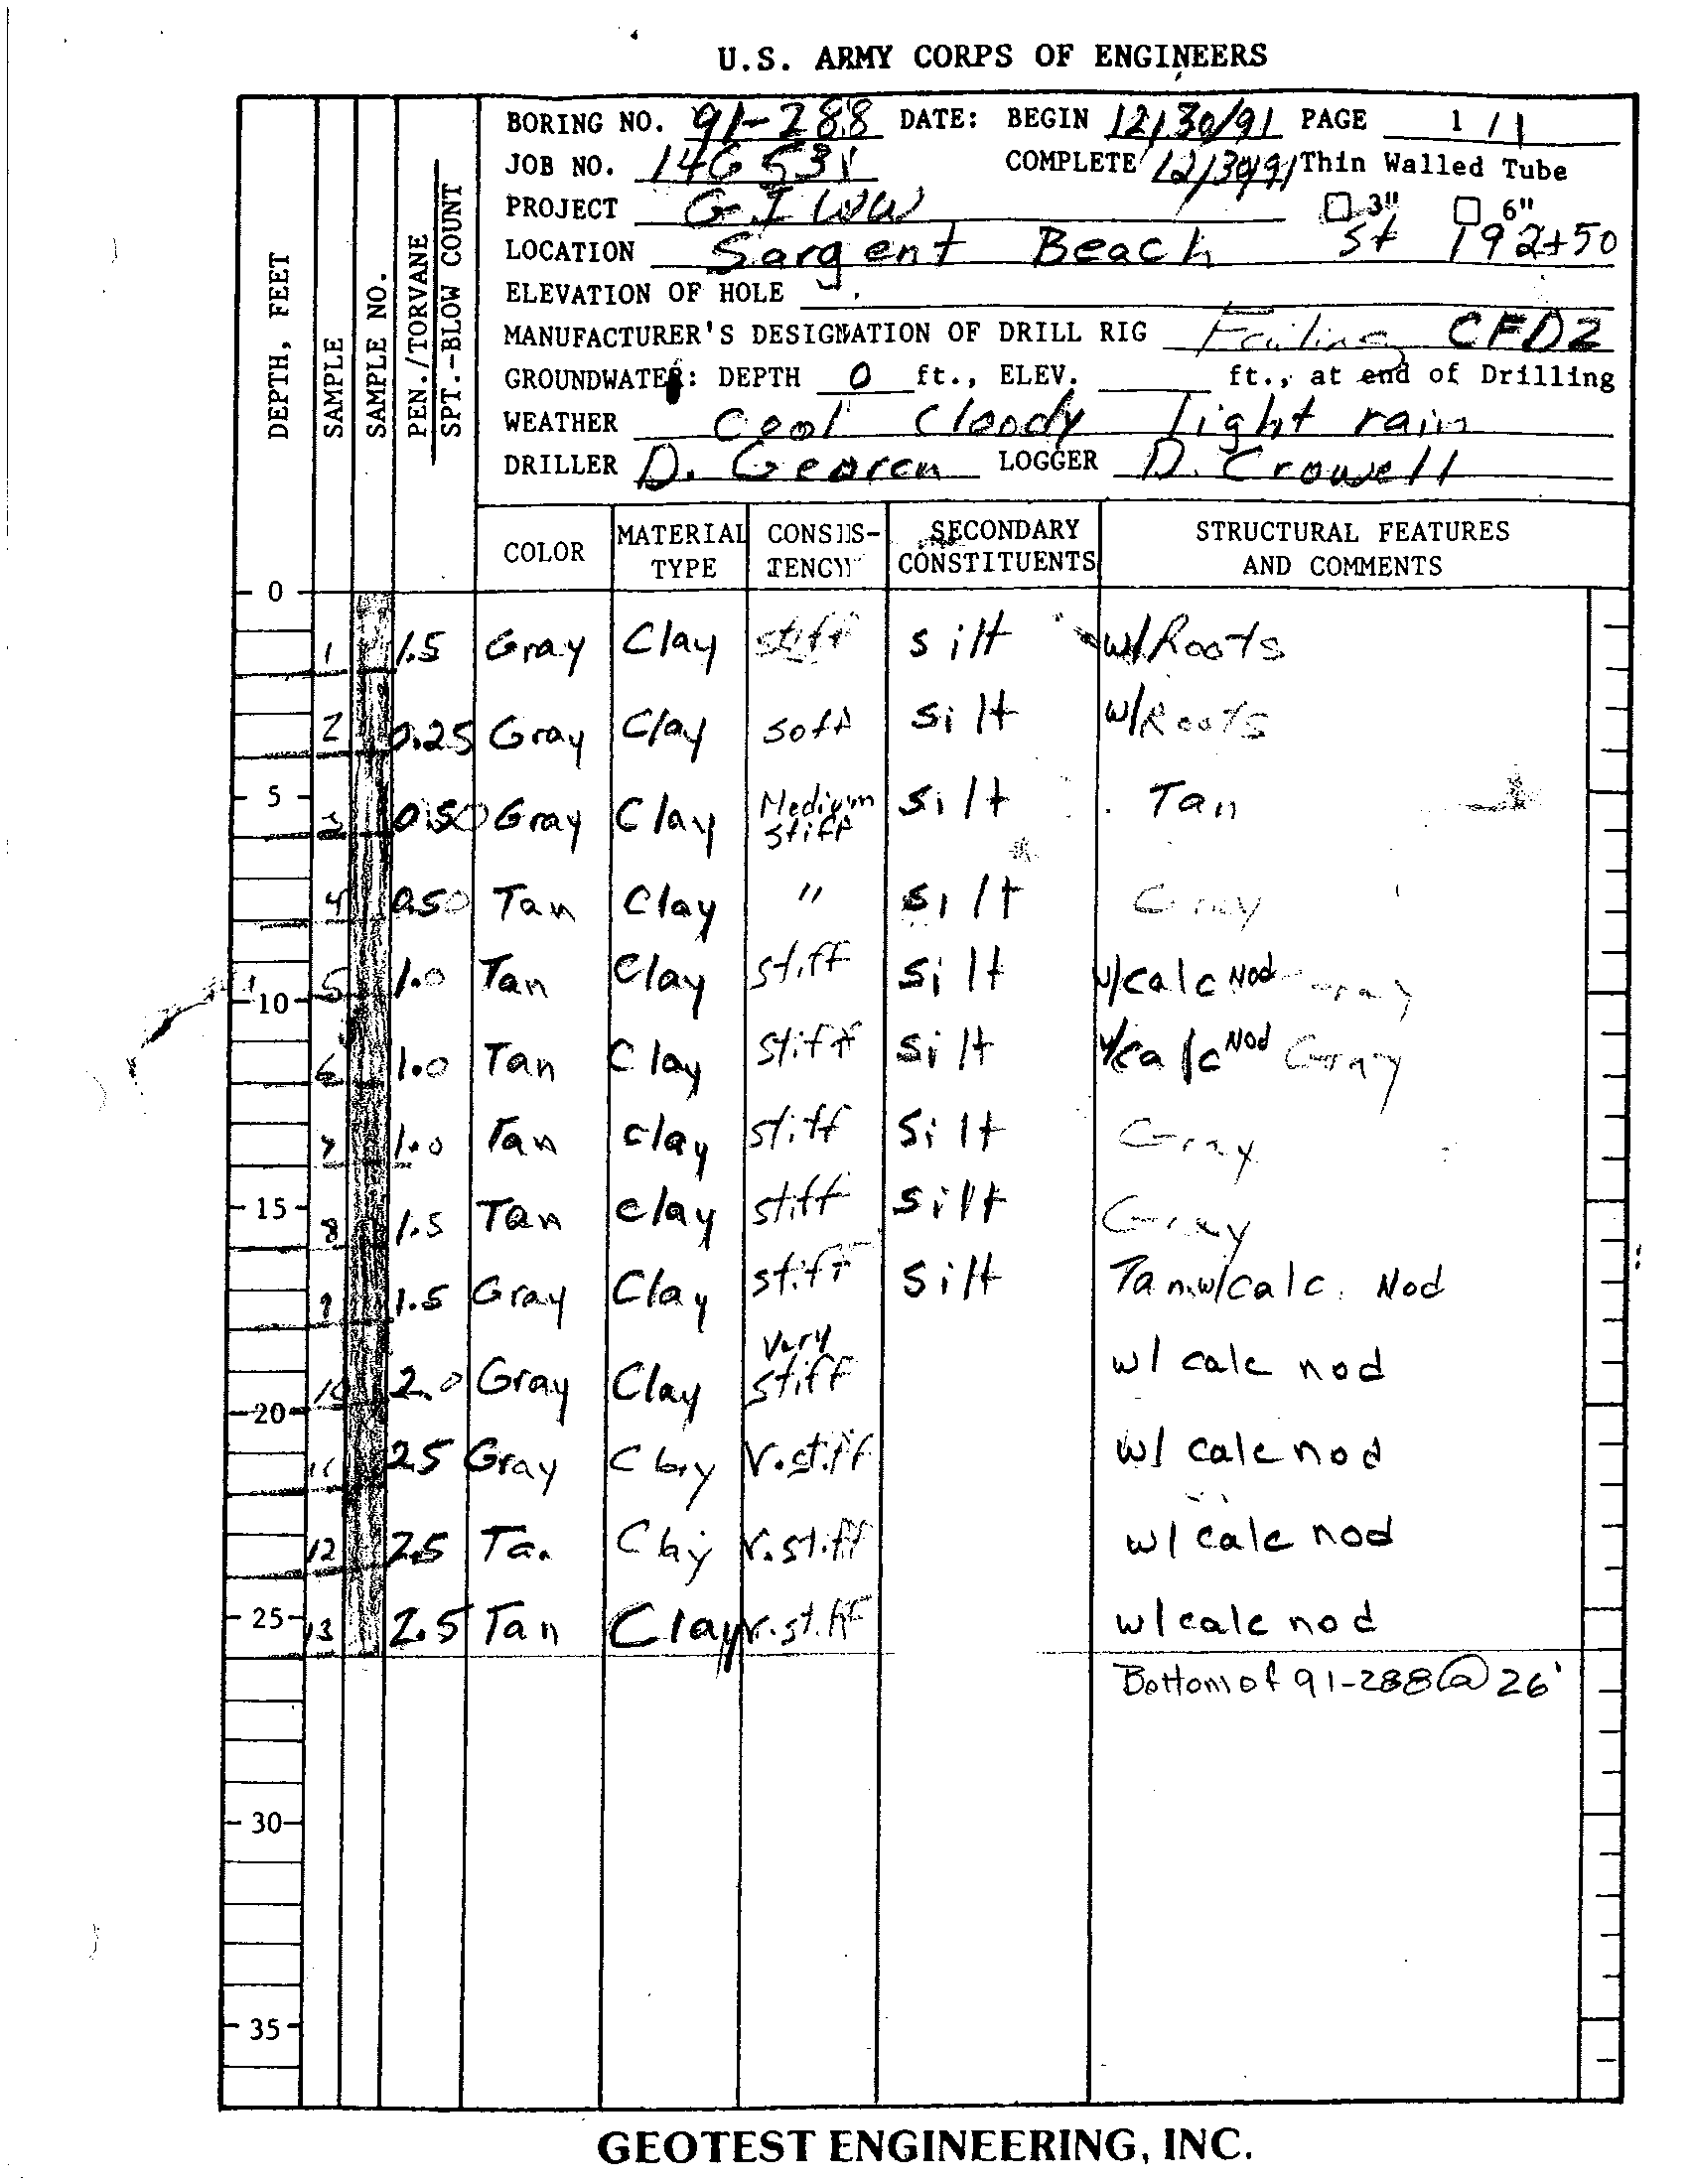 U.S. ARMY CORPS OF ENGINEERS
BORING NO. 91-288 DATE: BEGIN 12/30/91 PAGE 1 / 1
JOB NO. 14G531 COMPLETE 12/30/91 Thin Walled Tube
PROJECT G.I WW □ 3" □ 6"
LOCATION Sargent Beach St 192+50
ELEVATION OF HOLE
MANUFACTURER'S DESIGNATION OF DRILL RIG Failing CFD2
GROUNDWATER: DEPTH 0 ft., ELEV. ft., at end of Drilling
WEATHER Cool Cloody light rain
DRILLER D. LOGGER D. Crowell
DEPTH, FEET
SAMPLE
SAMPLE NO.
PEN./TORVANE
SPT.-BLOW COUNT
COLOR MATERIAL TYPE CONSIS-TENCY SECONDARY CONSTITUENTS STRUCTURAL FEATURES AND COMMENTS
0
1 1.5 Gray Clay stiff silt w/Roots
2 0.25 Gray Clay soft silt w/Roots
5
3 0.50 Gray Clay Medium stiff silt Tan
4 0.50 Tan Clay " silt Gray
5 1.0 Tan Clay stiff silt w/calc Nod Gray
10
6 1.0 Tan Clay stiff silt w/calc Nod Gray
7 1.0 Tan clay stiff silt Gray
15
8 1.5 Tan clay stiff silt Gray
9 1.5 Gray Clay stiff silt Tan w/calc. Nod
10 2.0 Gray Clay very stiff w/ calc nod
20
11 2.5 Gray Clay V.stiff w/ calc nod
12 2.5 Tan Clay V.stiff w/ calc nod
25
13 2.5 Tan Clay v.stiff w/calc nod
Bottom of 91-288 @ 26'
30
35
GEOTEST ENGINEERING, INC.